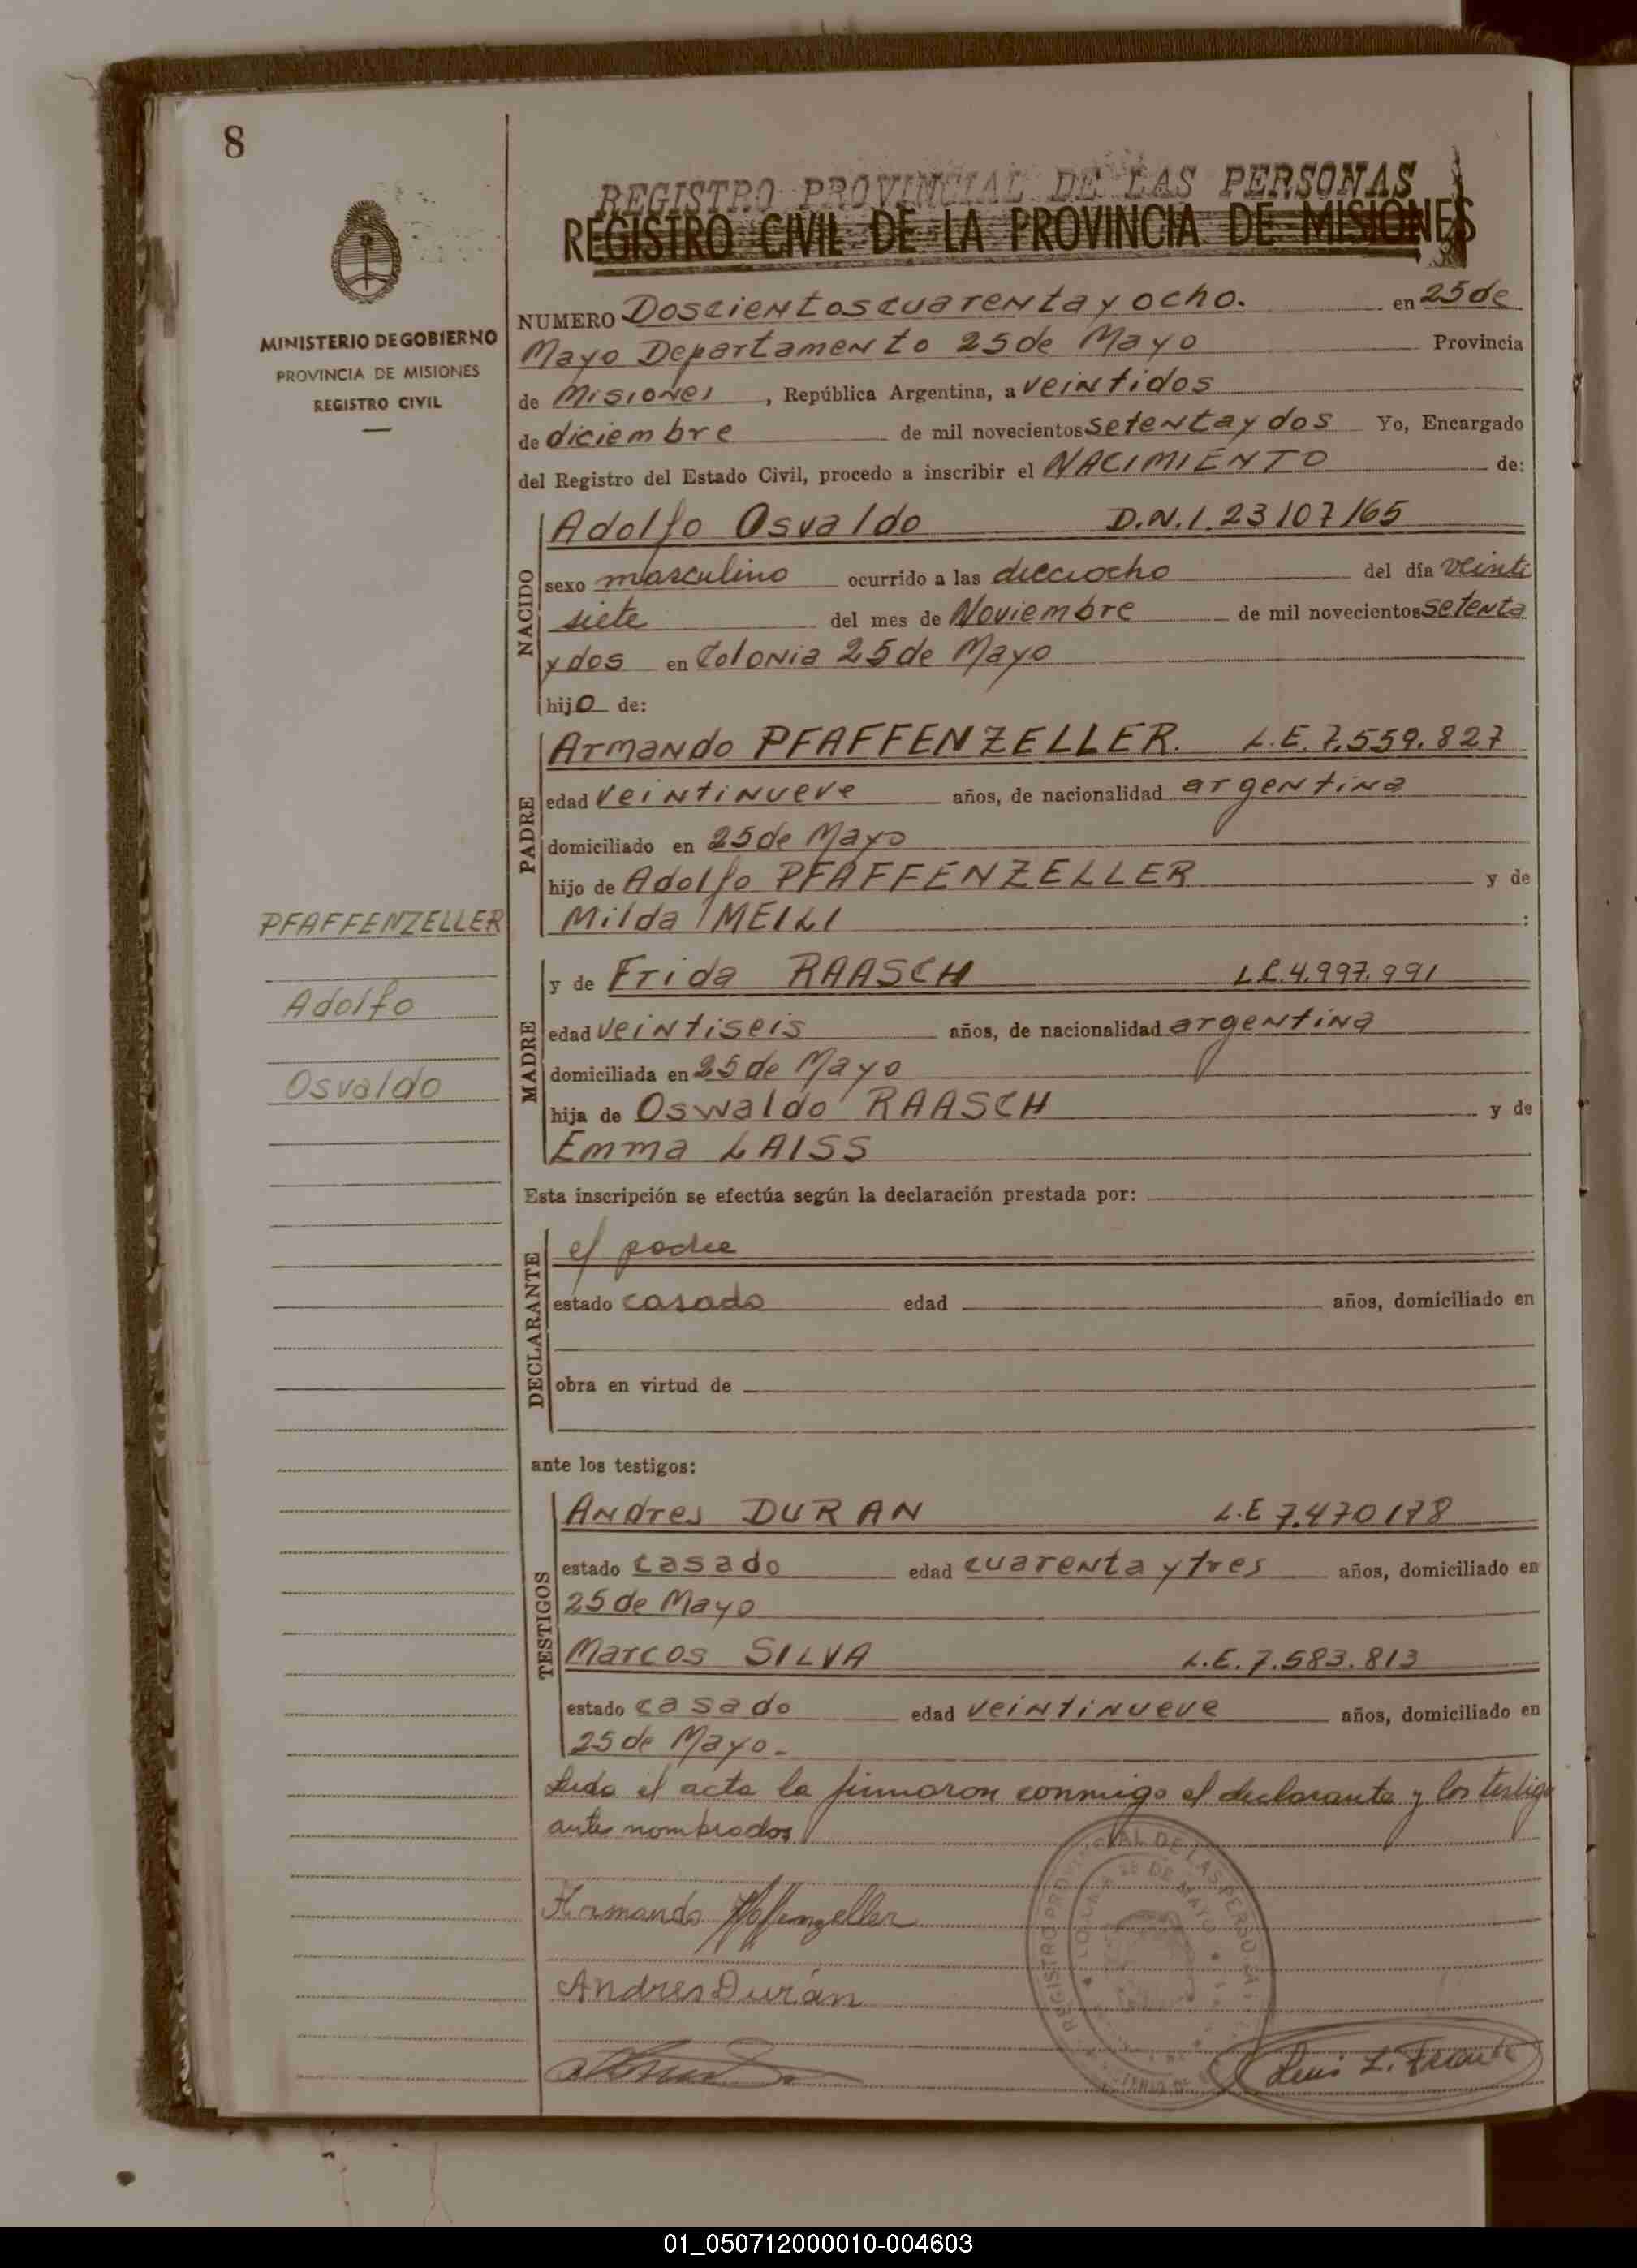 8
REGISTRO PROVINCIAL DE LAS PERSONAS
REGISTRO CIVIL DE LA PROVINCIA DE MISIONES
MINISTERIO DE GOBIERNO
PROVINCIA DE MISIONES
REGISTRO CIVIL
NUMERO Doscientos cuarenta y ocho. en 25 de
Mayo Departamento 25 de Mayo Provincia
de Misiones, República Argentina, a veintidos
de diciembre de mil novecientos setenta y dos Yo, Encargado
del Registro del Estado Civil, procedo a inscribir el NACIMIENTO de:
NACIDO
Adolfo Osvaldo D.N.I. 23/07/65
sexo masculino ocurrido a las dieciocho del día veinti
siete del mes de Noviembre de mil novecientos setenta
y dos en Colonia 25 de Mayo
hijo de:
PADRE
Armando PFAFFENZELLER. L.E. 7.559.827
edad veintinueve años, de nacionalidad argentina
domiciliado en 25 de Mayo
hijo de Adolfo PFAFFENZELLER y de
Milda MEILI :
PFAFFENZELLER
Adolfo
Osvaldo
MADRE
y de Frida RAASCH L.C. 4.997.991
edad veintiseis años, de nacionalidad argentina
domiciliada en 25 de Mayo
hija de Oswaldo RAASCH y de
Emma LAISS
Esta inscripción se efectúa según la declaración prestada por:
DECLARANTE
el padre
estado casado edad años, domiciliado en
obra en virtud de
ante los testigos:
TESTIGOS
Andres DURAN L.E 7.470178
estado casado edad cuarenta y tres años, domiciliado en
25 de Mayo
Marcos SILVA L.E. 7.583.813
estado casado edad veintinueve años, domiciliado en
25 de Mayo.
Leida el acta la firmaron conmigo el declarante y los testigo
ante nombrados
Armando Pfaffenzeller
Andres Durán
REGISTRO PROVINCIAL DE LAS PERSONAS
25 DE MAYO
01_050712000010-004603